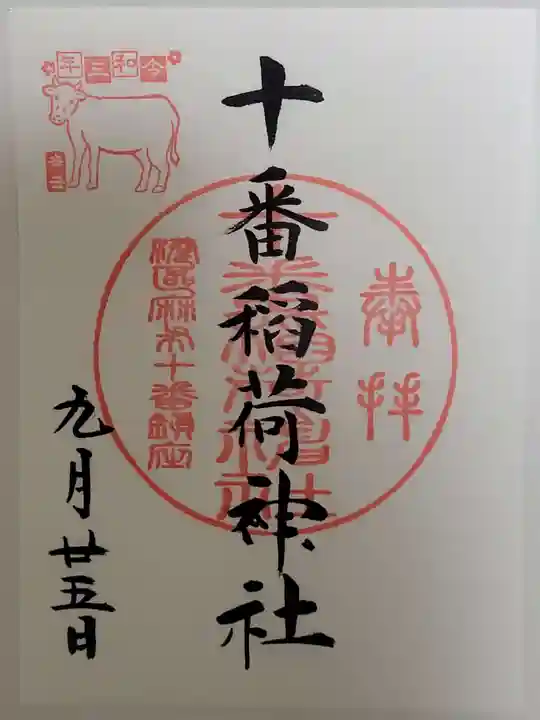 奉拝
十番稲荷神社
港区麻布十番鎮座
令和三年
九月廿五日